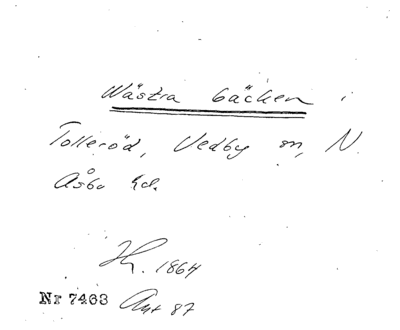 Wästra bäcken i
Tolleröd, Vedby sn, N.
Åsbo hd.
Hr. 1864
Nr 7463 Ant 87